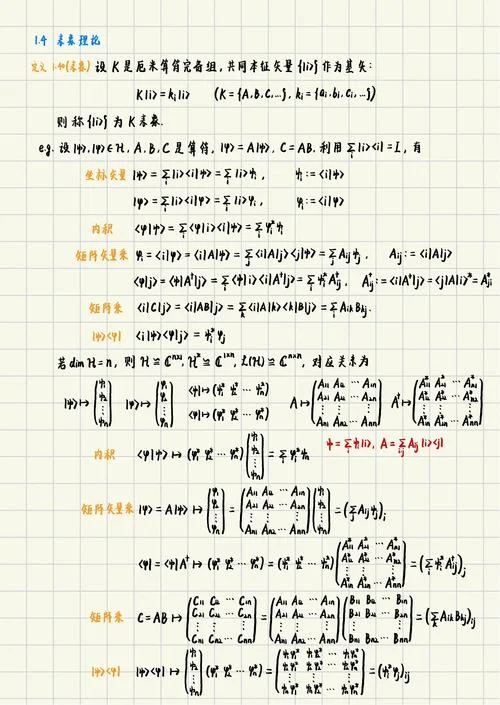 1.4 表象理论
定义 1.40(表象) 设 K 是厄米算符完备组, 共同本征矢量 {|i>} 作为基矢:
K|i> = kᵢ|i> (K = {A, B, C, ...}, kᵢ = {aᵢ, bᵢ, cᵢ, ...})
则称 {|i>} 为 K 表象.
e.g. 设 |ψ>, |φ> ∈ H, A, B, C 是算符, |φ> = A|ψ>, C = AB. 利用 Σᵢ|i><i| = I, 有
坐标矢量 |ψ> = Σᵢ|i><i|ψ> = Σᵢ|i>ψᵢ, ψᵢ := <i|ψ>
|φ> = Σᵢ|i><i|φ> = Σᵢ|i>φᵢ, φᵢ := <i|φ>
内积 <φ|ψ> = Σᵢ<φ|i><i|ψ> = Σᵢφᵢ*ψᵢ
矩阵矢量乘 φᵢ = <i|φ> = <i|A|ψ> = Σⱼ<i|A|j><j|ψ> = ΣⱼAᵢⱼψⱼ, Aᵢⱼ := <i|A|j>
<φ|j> = <ψ|A†|j> = Σᵢ<ψ|i><i|A†|j> = Σᵢψᵢ*A†ᵢⱼ, A†ᵢⱼ := <i|A†|j> = <j|A|i>* = A*ⱼᵢ
矩阵乘 <i|C|j> = <i|AB|j> = Σₖ<i|A|k><k|B|j> = ΣₖAᵢₖBₖⱼ.
|ψ><φ| <i|ψ><φ|j> = ψᵢφⱼ*
若 dim H = n, 则 H ≅ ℂⁿˣ¹, H* ≅ ℂ¹ˣⁿ, L(H) ≅ ℂⁿˣⁿ, 对应关系为
|ψ> ↦ (ψ₁ ψ₂ ⋮ ψₙ) |φ> ↦ (φ₁ φ₂ ⋮ φₙ) <ψ| ↦ (ψ₁* ψ₂* ⋯ ψₙ*) <φ| ↦ (φ₁* φ₂* ⋯ φₙ*) A ↦ (A₁₁ A₁₂ ⋯ A₁ₙ A₂₁ A₂₂ ⋯ A₂ₙ ⋮ Aₙ₁ Aₙ₂ ⋯ Aₙₙ) A† ↦ (A₁₁* A₂₁* ⋯ Aₙ₁* A₁₂* A₂₂* ⋯ Aₙ₂* ⋮ A₁ₙ* A₂ₙ* ⋯ Aₙₙ*)
ψ = Σᵢψᵢ|i>, A = ΣᵢⱼAᵢⱼ|i><j|
内积 <φ|ψ> ↦ (φ₁* φ₂* ⋯ φₙ*)(ψ₁ ψ₂ ⋮ ψₙ) = Σᵢφᵢ*ψᵢ
矩阵矢量乘 |φ> = A|ψ> ↦ (φ₁ φ₂ ⋮ φₙ) = (A₁₁ A₁₂ ⋯ A₁ₙ A₂₁ A₂₂ ⋯ A₂ₙ ⋮ Aₙ₁ Aₙ₂ ⋯ Aₙₙ)(ψ₁ ψ₂ ⋮ ψₙ) = (ΣⱼAᵢⱼψⱼ)ᵢ
<φ| = <ψ|A† ↦ (φ₁* φ₂* ⋯ φₙ*) = (ψ₁* ψ₂* ⋯ ψₙ*)(A₁₁* A₂₁* ⋯ Aₙ₁* A₁₂* A₂₂* ⋯ Aₙ₂* ⋮ A₁ₙ* A₂ₙ* ⋯ Aₙₙ*) = (Σᵢψᵢ*A†ᵢⱼ)ⱼ
矩阵乘 C = AB ↦ (C₁₁ C₁₂ ⋯ C₁ₙ C₂₁ C₂₂ ⋯ C₂ₙ ⋮ Cₙ₁ Cₙ₂ ⋯ Cₙₙ) = (A₁₁ A₁₂ ⋯ A₁ₙ A₂₁ A₂₂ ⋯ A₂ₙ ⋮ Aₙ₁ Aₙ₂ ⋯ Aₙₙ)(B₁₁ B₁₂ ⋯ B₁ₙ B₂₁ B₂₂ ⋯ B₂ₙ ⋮ Bₙ₁ Bₙ₂ ⋯ Bₙₙ) = (ΣₖAᵢₖBₖⱼ)ᵢⱼ
|ψ><φ| |ψ><φ| ↦ (ψ₁ ψ₂ ⋮ ψₙ)(φ₁* φ₂* ⋯ φₙ*) = (ψ₁φ₁* ψ₁φ₂* ⋯ ψ₁φₙ* ψ₂φ₁* ψ₂φ₂* ⋯ ψ₂φₙ* ⋮ ψₙφ₁* ψₙφ₂* ⋯ ψₙφₙ*) = (ψᵢφⱼ*)ᵢⱼ